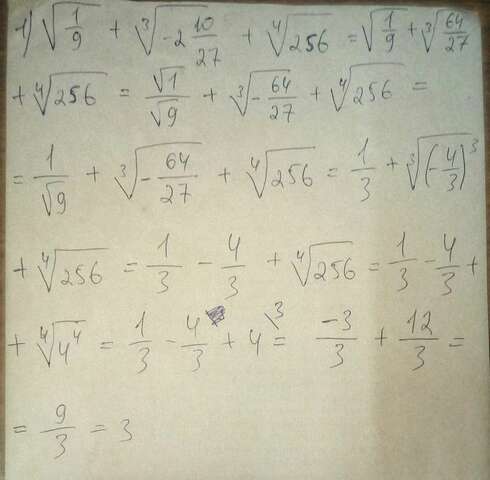 1) √(1/9) + ∛(-2 10/27) + ∜256 = √(1/9) + ∛(64/27)
+ ∜256 = √1/√9 + ∛(-64/27) + ∜256 =
= 1/√9 + ∛(-64/27) + ∜256 = 1/3 + ∛((-4/3)³)
+ ∜256 = 1/3 - 4/3 + ∜256 = 1/3 - 4/3 +
+ ∜(4⁴) = 1/3 - 4/3 + 4\3 = -3/3 + 12/3 =
= 9/3 = 3